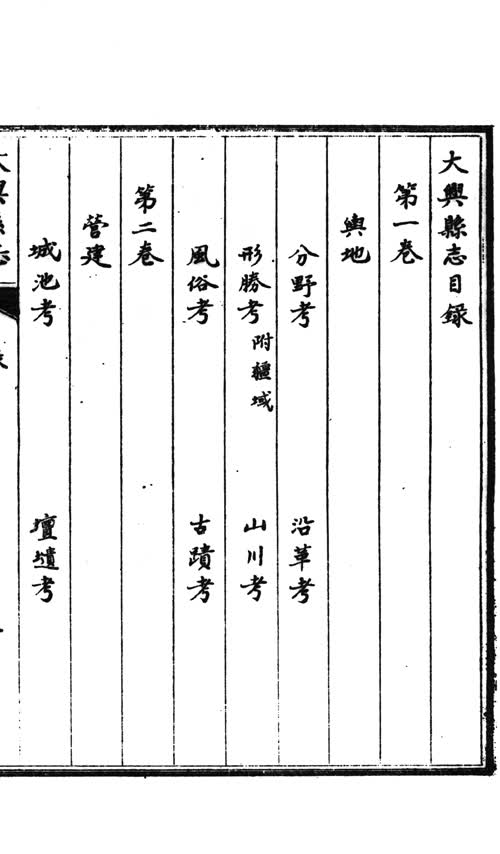 大興縣志目録
第一卷
輿地
分野考 沿革考
形勝考 附疆域 山川考
風俗考 古蹟考
第二卷
營建
城池考 壇壝考
大興縣志